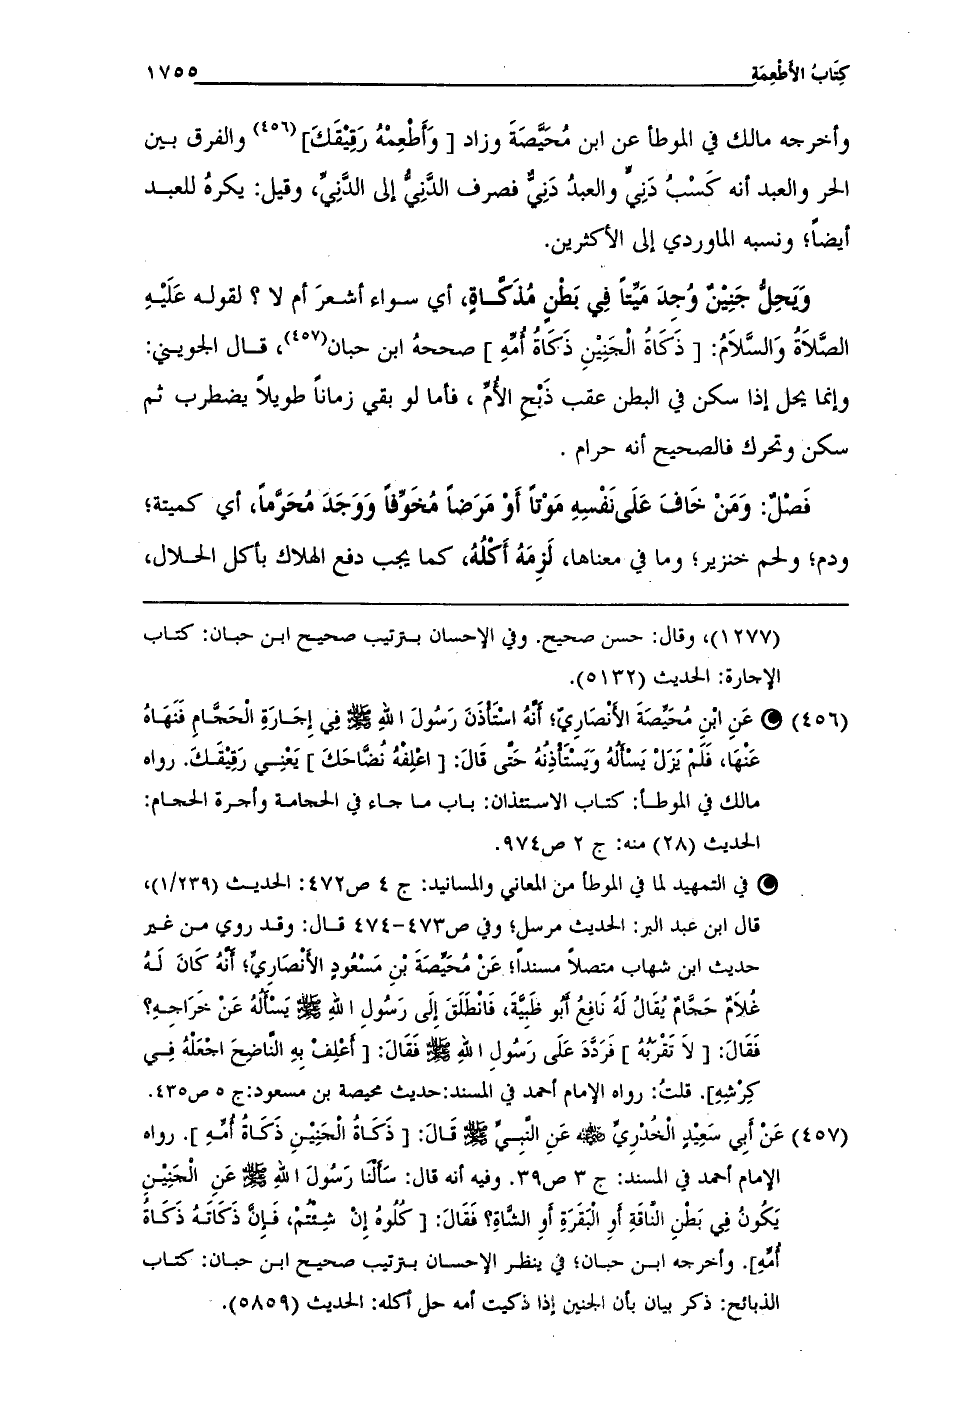 كِتَابُ الأَطْعِمَةِ ١٧٥٥
وأخرجه مالك في الموطأ عن ابن مُحَيَّصَةَ وزاد [ وَأَطْعِمْهُ رَقِيْقَكَ](٤٥٦) والفرق بين
الحر والعبد أنه كَسْبُ دَنِيٍّ والعبدُ دَنِيٌّ فصرف الدَّنِيُّ إلى الدَّنِيِّ، وقيل: يكرهُ للعبد
أيضاً؛ ونسبه الماوردي إلى الأكثرين.
وَيَحِلُّ جَنِيْنٌ وُجِدَ مَيِّتاً فِي بَطْنِ مُذَكَّاةٍ، أي سواء أشعرَ أم لا ؟ لقوله عَلَيْهِ
الصَّلاَةُ وَالسَّلاَمُ: [ ذَكَاةُ الْجَنِيْنِ ذَكَاةُ أُمِّهِ ] صححهُ ابن حبان(٤٥٧)، قال الجويني:
وإنما يحل إذا سكن في البطن عقب ذَبْحِ الأُمِّ ، فأما لو بقي زماناً طويلاً يضطرب ثم
سكن وتحرك فالصحيح أنه حرام .
فَصْلٌ: وَمَنْ خَافَ عَلَى نَفْسِهِ مَوْتاً أَوْ مَرَضاً مُخَوِّفاً وَوَجَدَ مُحَرَّماً، أي كميتة؛
ودم؛ ولحم خنزير؛ وما في معناها، لَزِمَهُ أَكْلُهُ، كما يجب دفع الهلاك بأكل الحلال،
(١٢٧٧)، وقال: حسن صحيح. وفي الإحسان بترتيب صحيح ابن حبان: كتاب
الإجارة: الحديث (٥١٣٢).
(٤٥٦) عَنِ ابْنِ مُحَيِّصَةَ الأَنْصَارِيِّ؛ أَنَّهُ اسْتَأْذَنَ رَسُولَ اللهِ ﷺ فِي إِجَارَةِ الْحَجَّامِ فَنَهَاهُ
عَنْهَا، فَلَمْ يَزَلْ يَسْأَلُهُ وَيَسْتَأْذِنُهُ حَتَّى قَالَ: [ اعْلِفْهُ نُضَّاحَكَ ] يَعْنِي رَقِيْقَكَ. رواه
مالك في الموطأ: كتاب الاستئذان: باب ما جاء في الحجامة وأجرة الحجام:
الحديث (٢٨) منه: ج ٢ ص٩٧٤.
في التمهيد لما في الموطأ من المعاني والمسانيد: ج ٤ ص٤٧٢: الحديث (١/٢٣٩)،
قال ابن عبد البر: الحديث مرسل؛ وفي ص٤٧٣-٤٧٤ قال: وقد روي من غير
حديث ابن شهاب متصلاً مسنداً؛ عَنْ مُحَيِّصَةَ بْنِ مَسْعُودٍ الأَنْصَارِيِّ؛ أَنَّهُ كَانَ لَهُ
غُلاَمٌ حَجَّامٌ يُقَالُ لَهُ نَافِعُ أَبُو طَبِيَّةَ، فَانْطَلَقَ إِلَى رَسُولِ اللهِ ﷺ يَسْأَلُهُ عَنْ خَرَاجِهِ؟
فَقَالَ: [ لاَ تَقْرَبْهُ ] فَرَدَّدَ عَلَى رَسُولِ اللهِ ﷺ فَقَالَ: [ أَعْلِفْ بِهِ النَّاضِحَ اجْعَلْهُ فِي
كِرْشِهِ]. قلتُ: رواه الإمام أحمد في المسند:حديث محيصة بن مسعود:ج ٥ ص٤٣٥.
(٤٥٧) عَنْ أَبِي سَعِيْدٍ الْخُدْرِيِّ ﷺ عَنِ النَّبِيِّ ﷺ قَالَ: [ ذَكَاةُ الْجَنِيْنِ ذَكَاةُ أُمِّهِ ]. رواه
الإمام أحمد في المسند: ج ٣ ص٣٩. وفيه أنه قال: سَأَلْنَا رَسُولَ اللهِ ﷺ عَنِ الْجَنِيْنِ
يَكُونُ فِي بَطْنِ النَّاقَةِ أَوِ الْبَقَرَةِ أَوِ الشَّاةِ؟ فَقَالَ: [ كُلُوهُ إِنْ شِئْتُمْ، فَإِنَّ ذَكَاتَهُ ذَكَاةُ
أُمِّهِ]. وأخرجه ابن حبان؛ في ينظر الإحسان بترتيب صحيح ابن حبان: كتاب
الذبائح: ذكر بيان بأن الجنين إذا ذكيت أمه حل أكله: الحديث (٥٨٥٩).